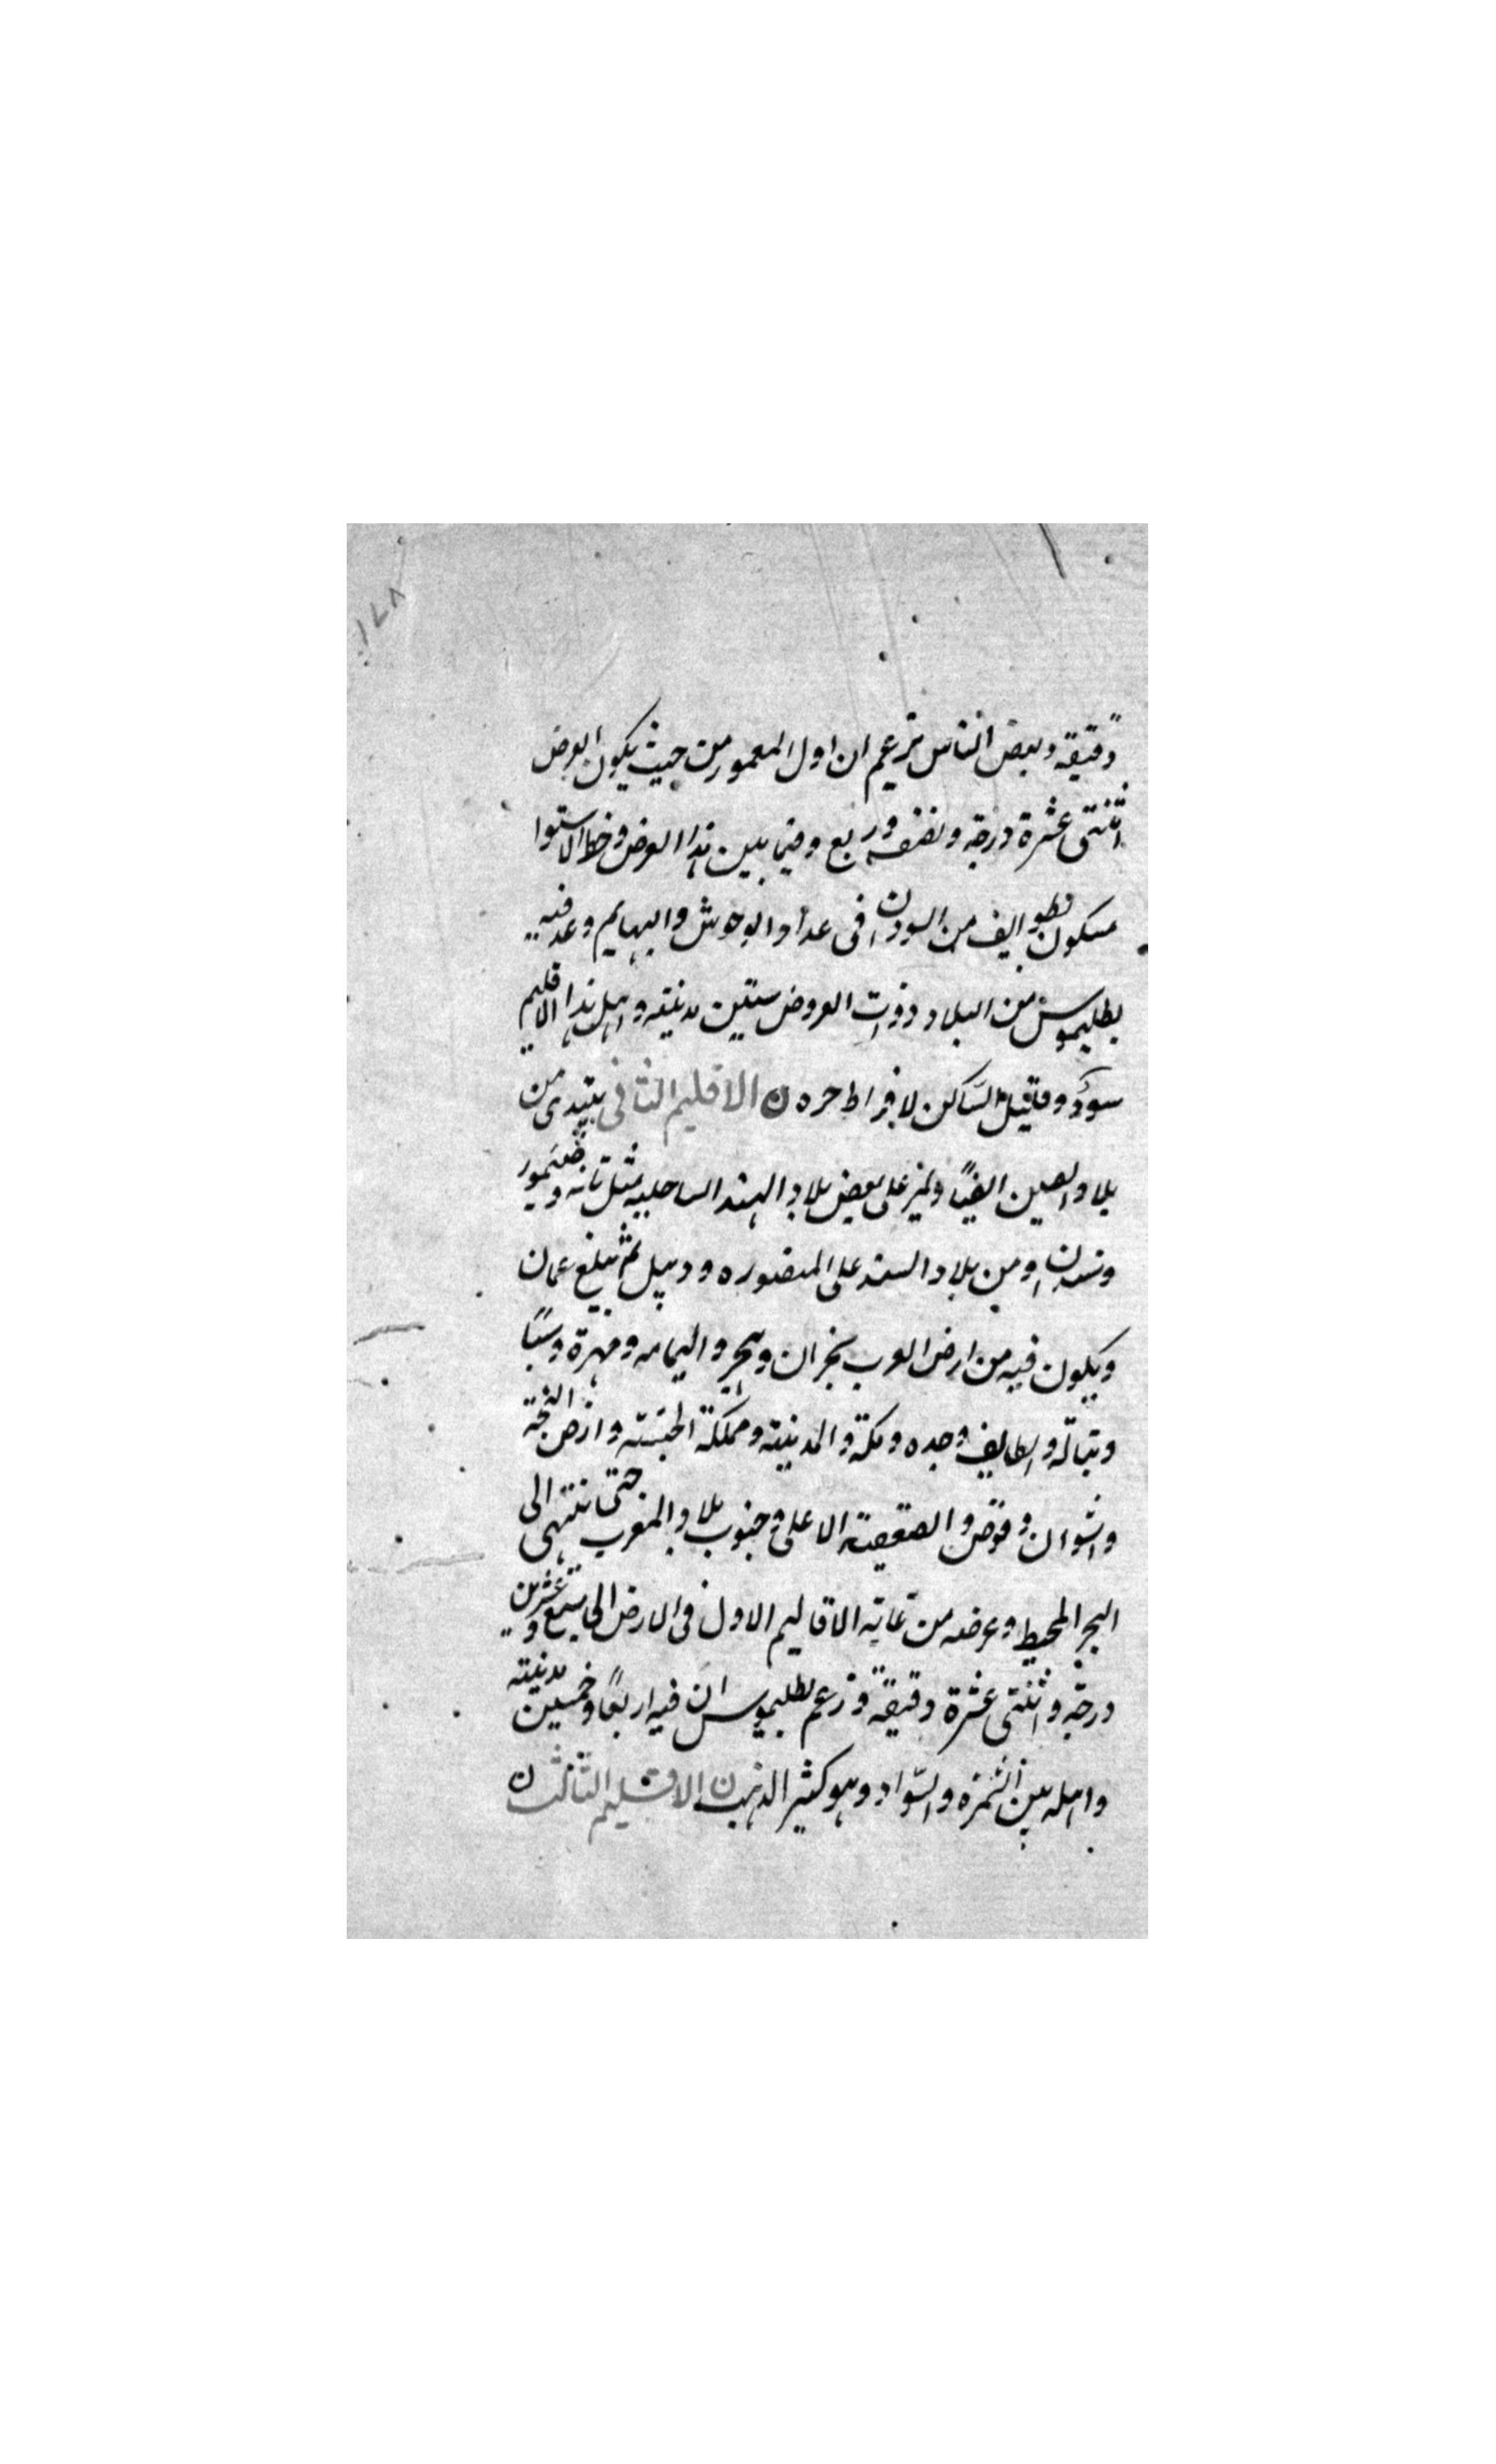 ١٧٨
دقيقه وبعض الناس يزعم ان اول المعمور من حيث يكون العرض
اثنتى عشرة درجه ونصف وربع وفيما بين هذا العرض وخط الاستوا
مسكون بطوايف من السودان فى عداد الوحوش والبهايم وعد فيه
بطليموس من البلاد ذوات العروض ستين مدينه واهل هذا الاقليم
سود وقليل الساكن لافراط حره ن الاقليم الثانى يبتدى من
بلاد الصين ايضًا ويمر على بعض بلاد الهند الساحليه مثل تانه وصيمور
وسندان ومن بلاد السند على المنصوره وديبل ثم يبلغ عمان
ويكون فيه من ارض العرب نجران وهجر واليمامه ومهرة وسبا
وتباله والطايف وجده ومكة والمدينة ومملكة الحبشه وارض البجة
واسوان وقوص والصعيد الاعلى وجنوب بلاد المغرب حتى ينتهى الى
البحر المحيط وعرضه من غاية الاقاليم الاول فى العرض الى سبع وعشرين
درجة واثنتى عشرة دقيقة وزعم بطليموس ان فيه اربعًا وخمسين مدينه
واهله بين السمرة والسواد وهو كثير الذهب ن الاقليم الثالث ن